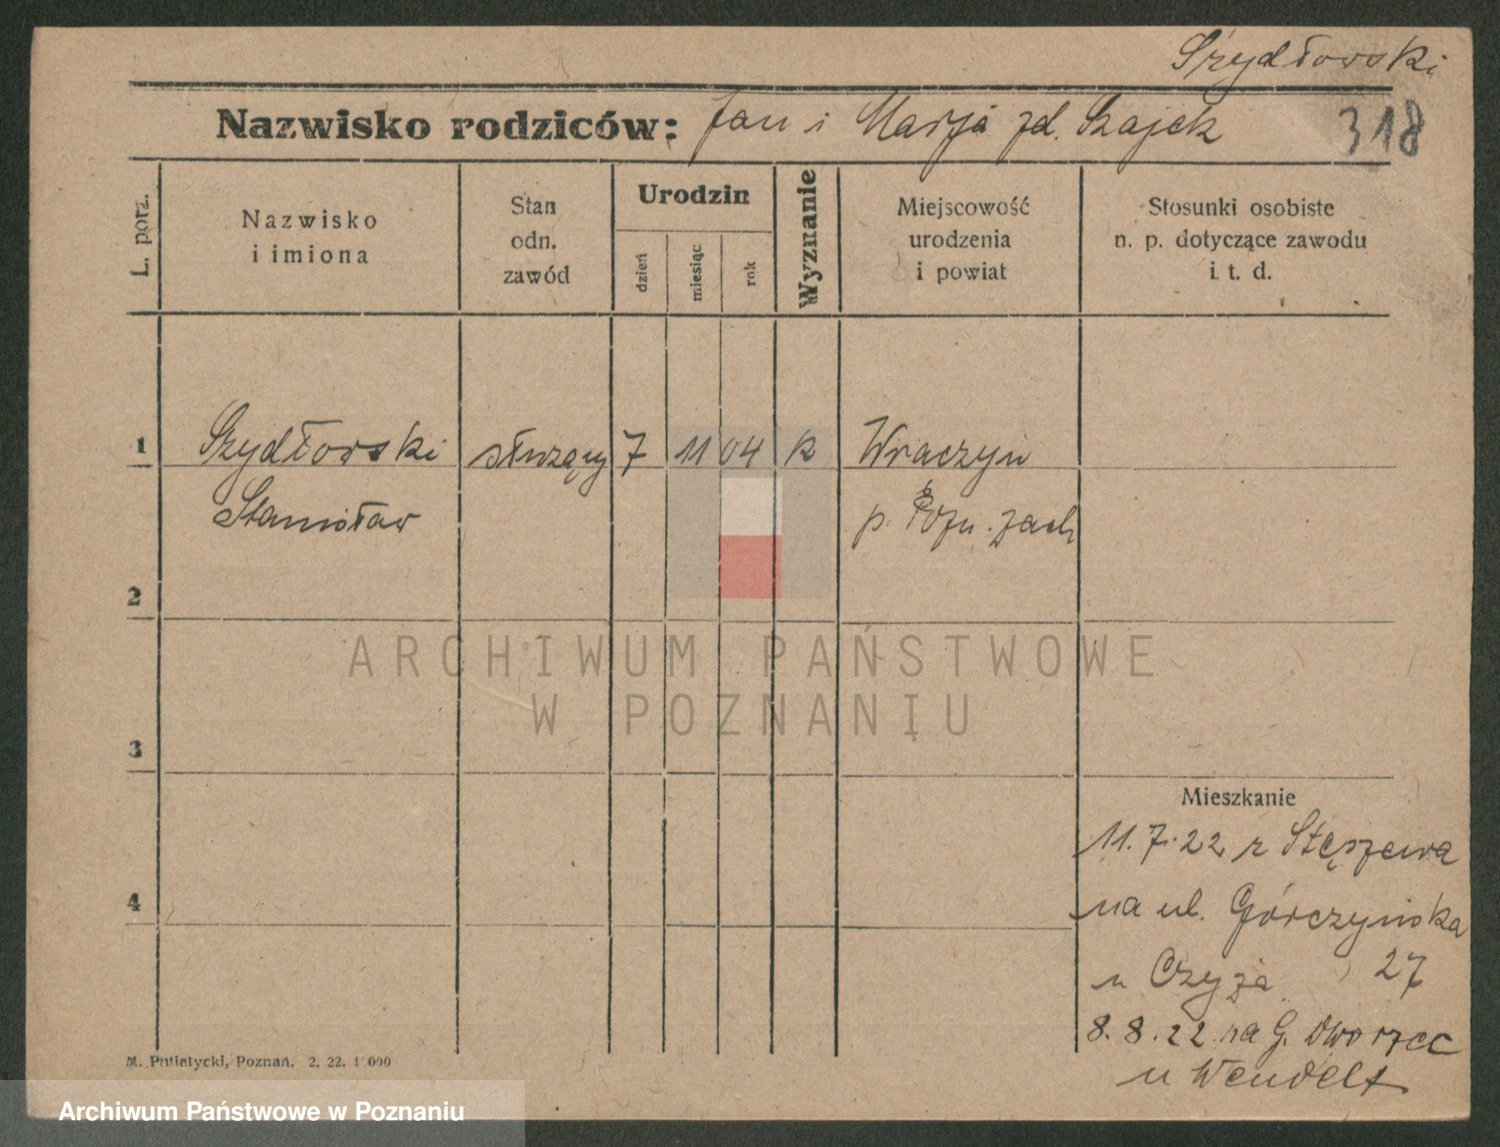 Szydłowski
Nazwisko rodziców: Jan i Marja zd. Szajek
318
L. porz.
Nazwisko
i imiona
Stan
odn.
zawód
Urodzin
dzień
miesiąc
rok
Wyznanie
Miejscowość
urodzenia
i powiat
Stosunki osobiste
n. p. dotyczące zawodu
i. t. d.
1
Szydłowski służący 7 11 04 k Wraczyn
Stanisław p. Pozn. zach
2
ARCHIWUM PAŃSTWOWE
W POZNANIU
3
Mieszkanie
11.7.22 z Stęszewa
4
na ul. Górczyńska
u Czyża 27
8.8.22 na G. Dworzec
u Wendelt
M. Putiatycki, Poznań. 2, 22. 1 000
Archiwum Państwowe w Poznaniu